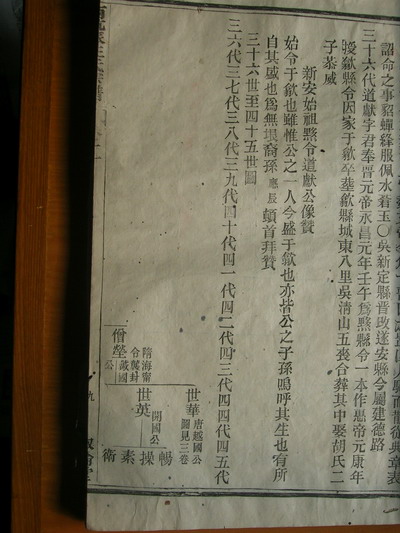 詔命之事貂蟬絳服佩水着玉〇吳新定縣晉改遂安縣今屬建德路
三十六代道獻字君奉晋元帝永昌元年壬午爲黟縣令一本作愍帝元康年
授歙縣令因家于歙卒葬歙縣城東八里吳清山五喪合葬其中娶胡氏二
子恭威
新安始祖黟令道獻公像贊
始令于歙也雖惟公之一人今盛于歙也亦皆公之子孫嗚呼其生也有所
自其盛也爲無垠裔孫應辰頓首拜贊
三十六世至四十五世圖
三六代三七代三八代三九代四十代四一代四二代四三代四四代四五代
僧瑩
隋海甯
令襲封
戴國
公
世華
唐越國公
圖見三卷
世英
開國公
暢
操
素
衛